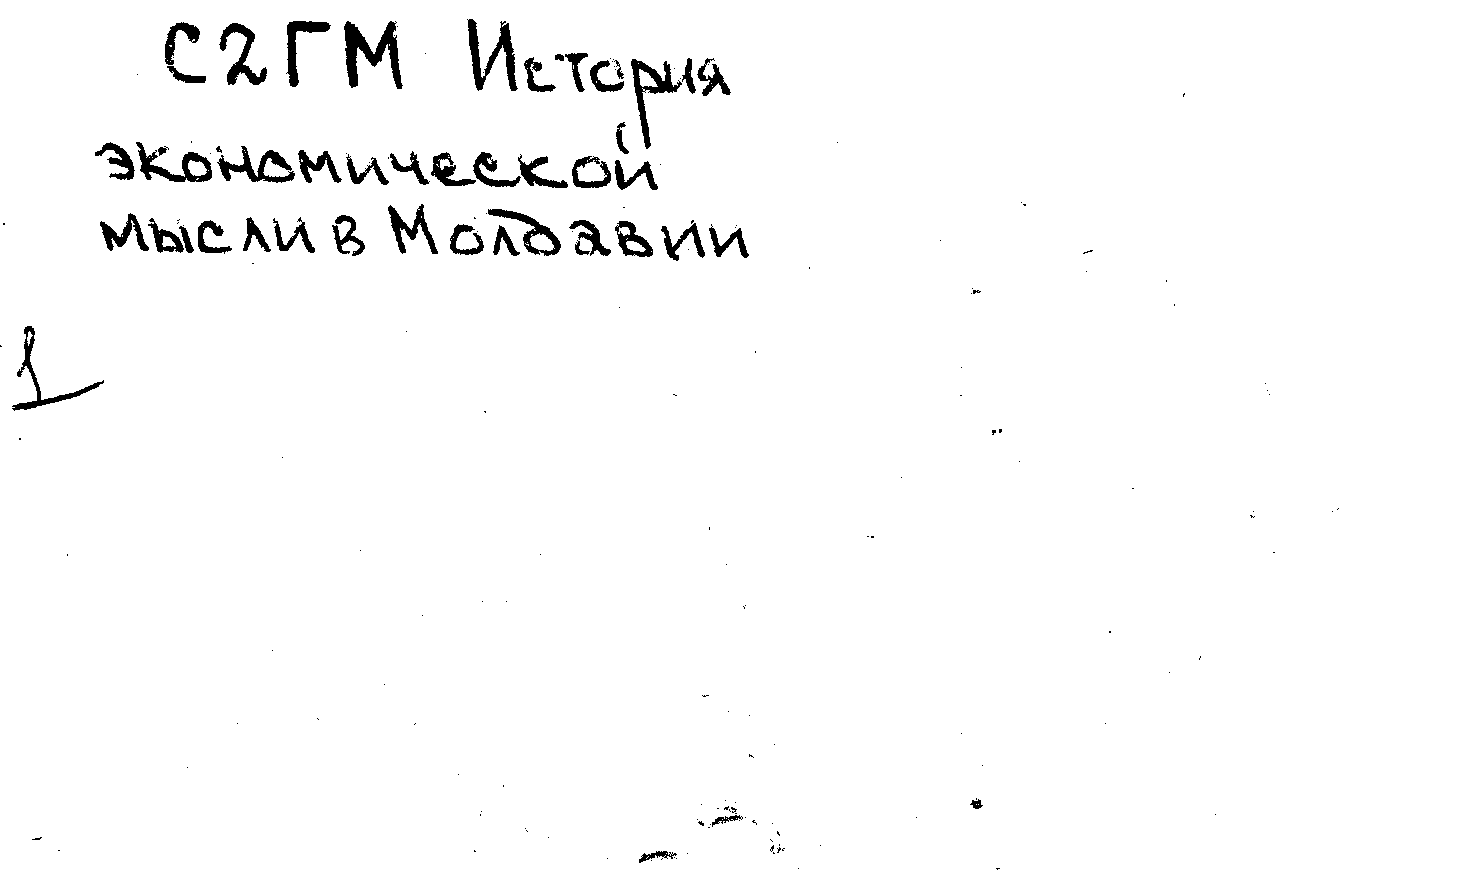 С2ГМ История
экономической
мысли в Молдавии
1